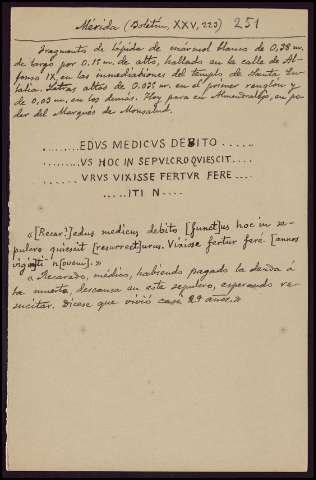 Mérida (Boletin, XXV, 223) 251
Fragmento de lápida de mármol blanco de 0,38 m.
de largo por 0,15 m. de alto, hallado en la calle de Al-
fonso IX, en las inmediaciones del templo de Santa Eu-
lalia. Letras altas de 0,035 m. en el primer renglón y
de 0,03 m, en los demás. Hoy para en Almendralejo, en po-
der del Marqués de Monsalud.
........EDVS MEDICVS DEBITO......
.........VS HOC IN SEPVLCRO QVIESCIT....
......VRVS VIXISSE FERTVR FERE....
.....ITI N....
«[Recar?]edus medicus debito [funct]us hoc in se-
pulcro quiescit [resurrect]urus. Vixisse fertur fere [annos
viginti n[ovem].»
«Recaredo, médico, habiendo pagado la deuda á
la muerte, descansa en este sepulcro, esperando re-
sucitar. Dicese que vivió casi 29 años.»